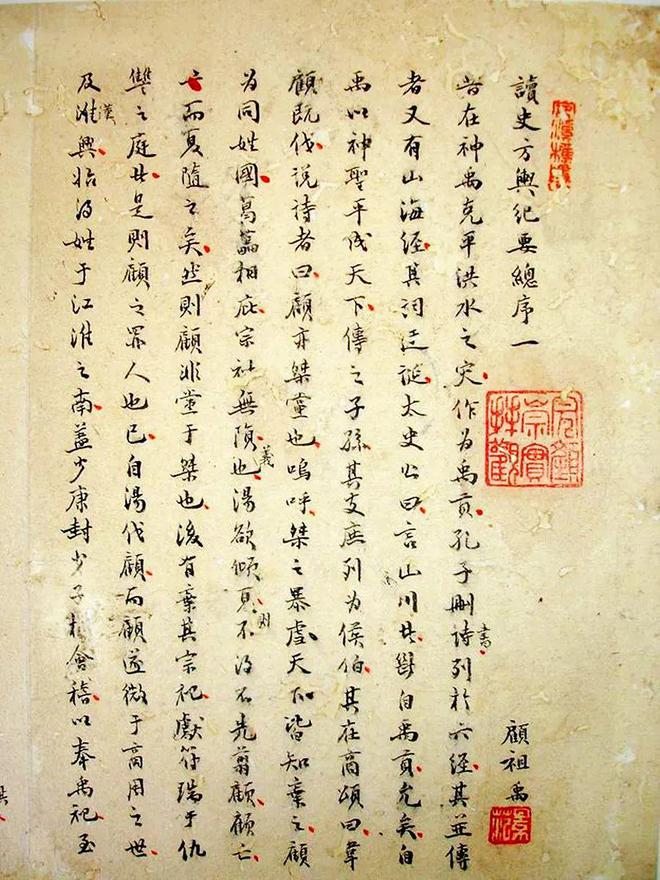 讀史方輿紀要總序一
顧祖禹
昔在神禹克平洪水之災作為禹貢孔子刪詩書列於六經其並傳
者又有山海經其詞迂誕太史公曰言山川者斷自禹貢允矣自
禹以神聖平成天下傳之子孫其支庶列為侯伯其在商頌曰韋
顧既伐說詩者曰顧亦桀黨也嗚呼桀之暴虐天下皆知棄之顧
為同姓國葛藟相庇宗社無隕義也湯欲傾夏則不得不先翦顧顧亡
亡而夏隨之矣然則顧非黨于桀也後有棄其宗祀獻符瑞于仇
讎之庭者是則顧之罪人也已自湯伐顧而顧遂微于商周之世
及漢興始得姓于江淮之南蓋少康封少子於會稽以奉禹祀至